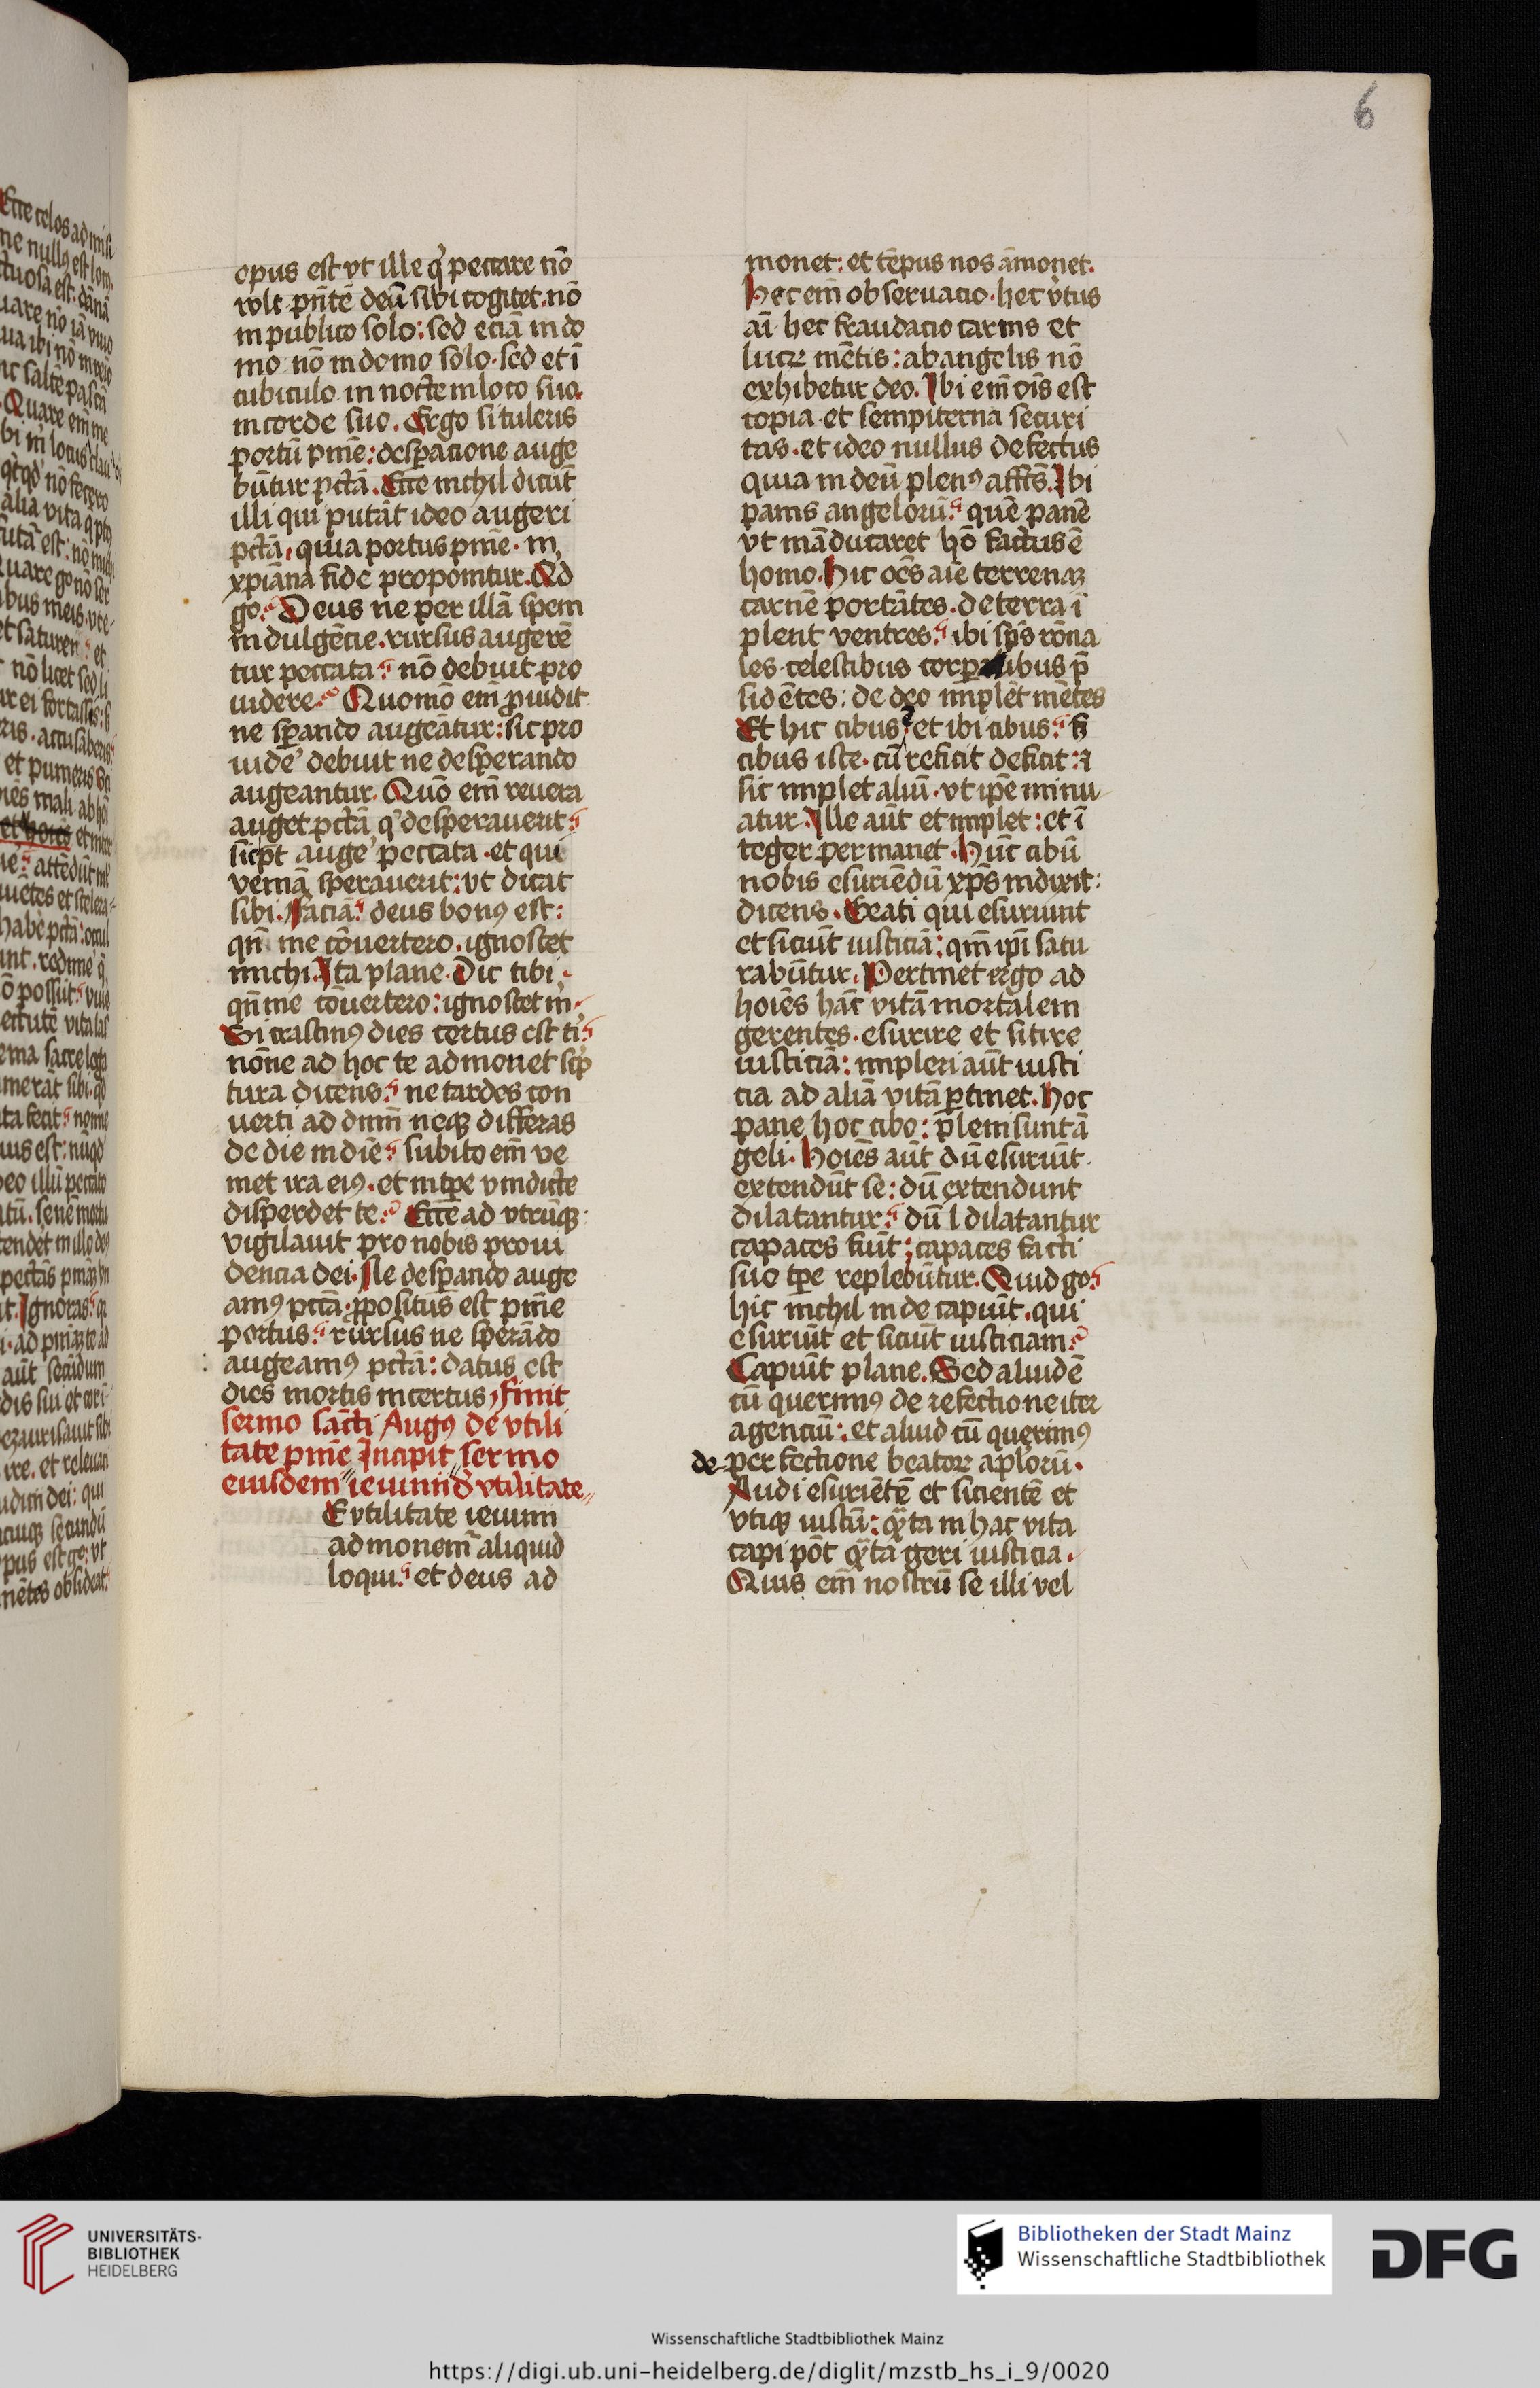 6
opus est vt ille q̇ peccare nō
vvlt pn̄tē deū sibi cogitet. nō
in publico solo: sed eciā in do
mo nō in domo solo. sed et ī
cubiculo in nocte in loco suo.
in corde suo. Ergo si tuleris
portū pīnie: desꝑacione auge
būtur pctā. Ecce nichil dicūt
illi qui putāt ideo augeri
pctā, quia portus pīnie. in
xpiāna fide proponitur. Qd
go. Deus ne per illā spem
indulgēcie. rursus augerē
tur peccata: nō debuit pro
uidere. Quomō em̄ ꝓuidit
ne sꝑando augeātur: sic pro
uide' debuit ne desperando
augeantur. Quō em̄ reuera
auget pctā q' desperauerit:
sic pt auge' peccata. et qui
veniā sperauerit: vt dicat
sibi. Faciā: deus bonꝰ est:
qn̄ me cōuertero. ignoscet
michi. Ita plane. Dic tibi
qn̄ me cōuertero: ignoscet m̄.
Si crastinꝰ dies certus est ti:
nōne ad hoc te admonet sc'p
tura dicens: ne tardes con
uerti ad dn̄m neqꝫ differas
de die in diē: subito em̄ ve
niet ira eiꝰ. et in tꝑe vindicte
disperdet te. Ecce ad vtrūqꝫ
vigilauit pro nobis proui
dencia dei. Ne desꝑando auge
amꝰ pctā. ꝓpositus est pīnie
portus: rursus ne sperādo
augeamꝰ pctā: datus est
dies mortis incertus, finit
sermo sācti Augꝰ de vtili
tate pīnie Incipit sermo
eiusdem ieiunii d' vtilitate
E vtilitate ieiunii
admonem̄ aliquid
loqui: et deus ad
monet: et tēpus nos āmonet.
Hec em̄ obseruacio. hec v'tus
aī. hec fraudacio carnis et
lucꝝ mētis: ab angelis nō
exhibetur deo. Ibi em̄ oīs est
copia. et sempiterna securi
tas. et ideo nullus defectus
quia in deū plenꝰ affēs. Ibi
panis angelorū: quē panē
vt māducaret hō factus ē
homo. Hic oēs aīe terrenaꝫ
carnē portātes. de terra ī
plent ventres: ibi sp̄s rōna
les. celestibus corꝑalibus p̄
sidētes: de deo implēt mētes
Et hic cibus: et ibi cibus: s̄
cibus iste. cū reficit deficit: ⁊
sic implet aliū. vt ip̄e minu
atur. Ille aūt et implet: et ī
teger permanet. Hūc cibū
nobis esuriēdū xp̄s indixit:
dicens. Beati qui esuriunt
et siciūt iusticiā: qm̄ ip̄i satu
rabūtur. Pertinet ergo ad
hoīes hāc vitā mortalem
gerentes. esurire et sitire
iusticiā: impleri aūt iusti
cia ad aliā vitā ꝑtinet. Hoc
pane hoc cibo: pleni sunt ā
geli. Hoīes aūt dū esuriūt.
extendūt se: dū extendunt
dilatantur: dū l dilatantur
capaces fiūt: capaces facti
suo tꝑe replebūtur. Quid go:
hic nichil inde capiūt. qui
esuriūt et siciūt iusticiam
Capiūt plane. Sed aliud ē
cū querimꝰ de refectione iter
agenciū: et aliud cū querimꝰ
de perfectione beatoꝝ aplorū.
Audi esuriētē et sicientē et
vtiqꝫ iustū: qͣta in hac vita
capi pōt qͣta geri iusticia.
Quis em̄ nostrū se illi vel
UNIVERSITÄTS-
BIBLIOTHEK
HEIDELBERG
Bibliotheken der Stadt Mainz
Wissenschaftliche Stadtbibliothek
DFG
Wissenschaftliche Stadtbibliothek Mainz
https://digi.ub.uni-heidelberg.de/diglit/mzstb_hs_i_9/0020